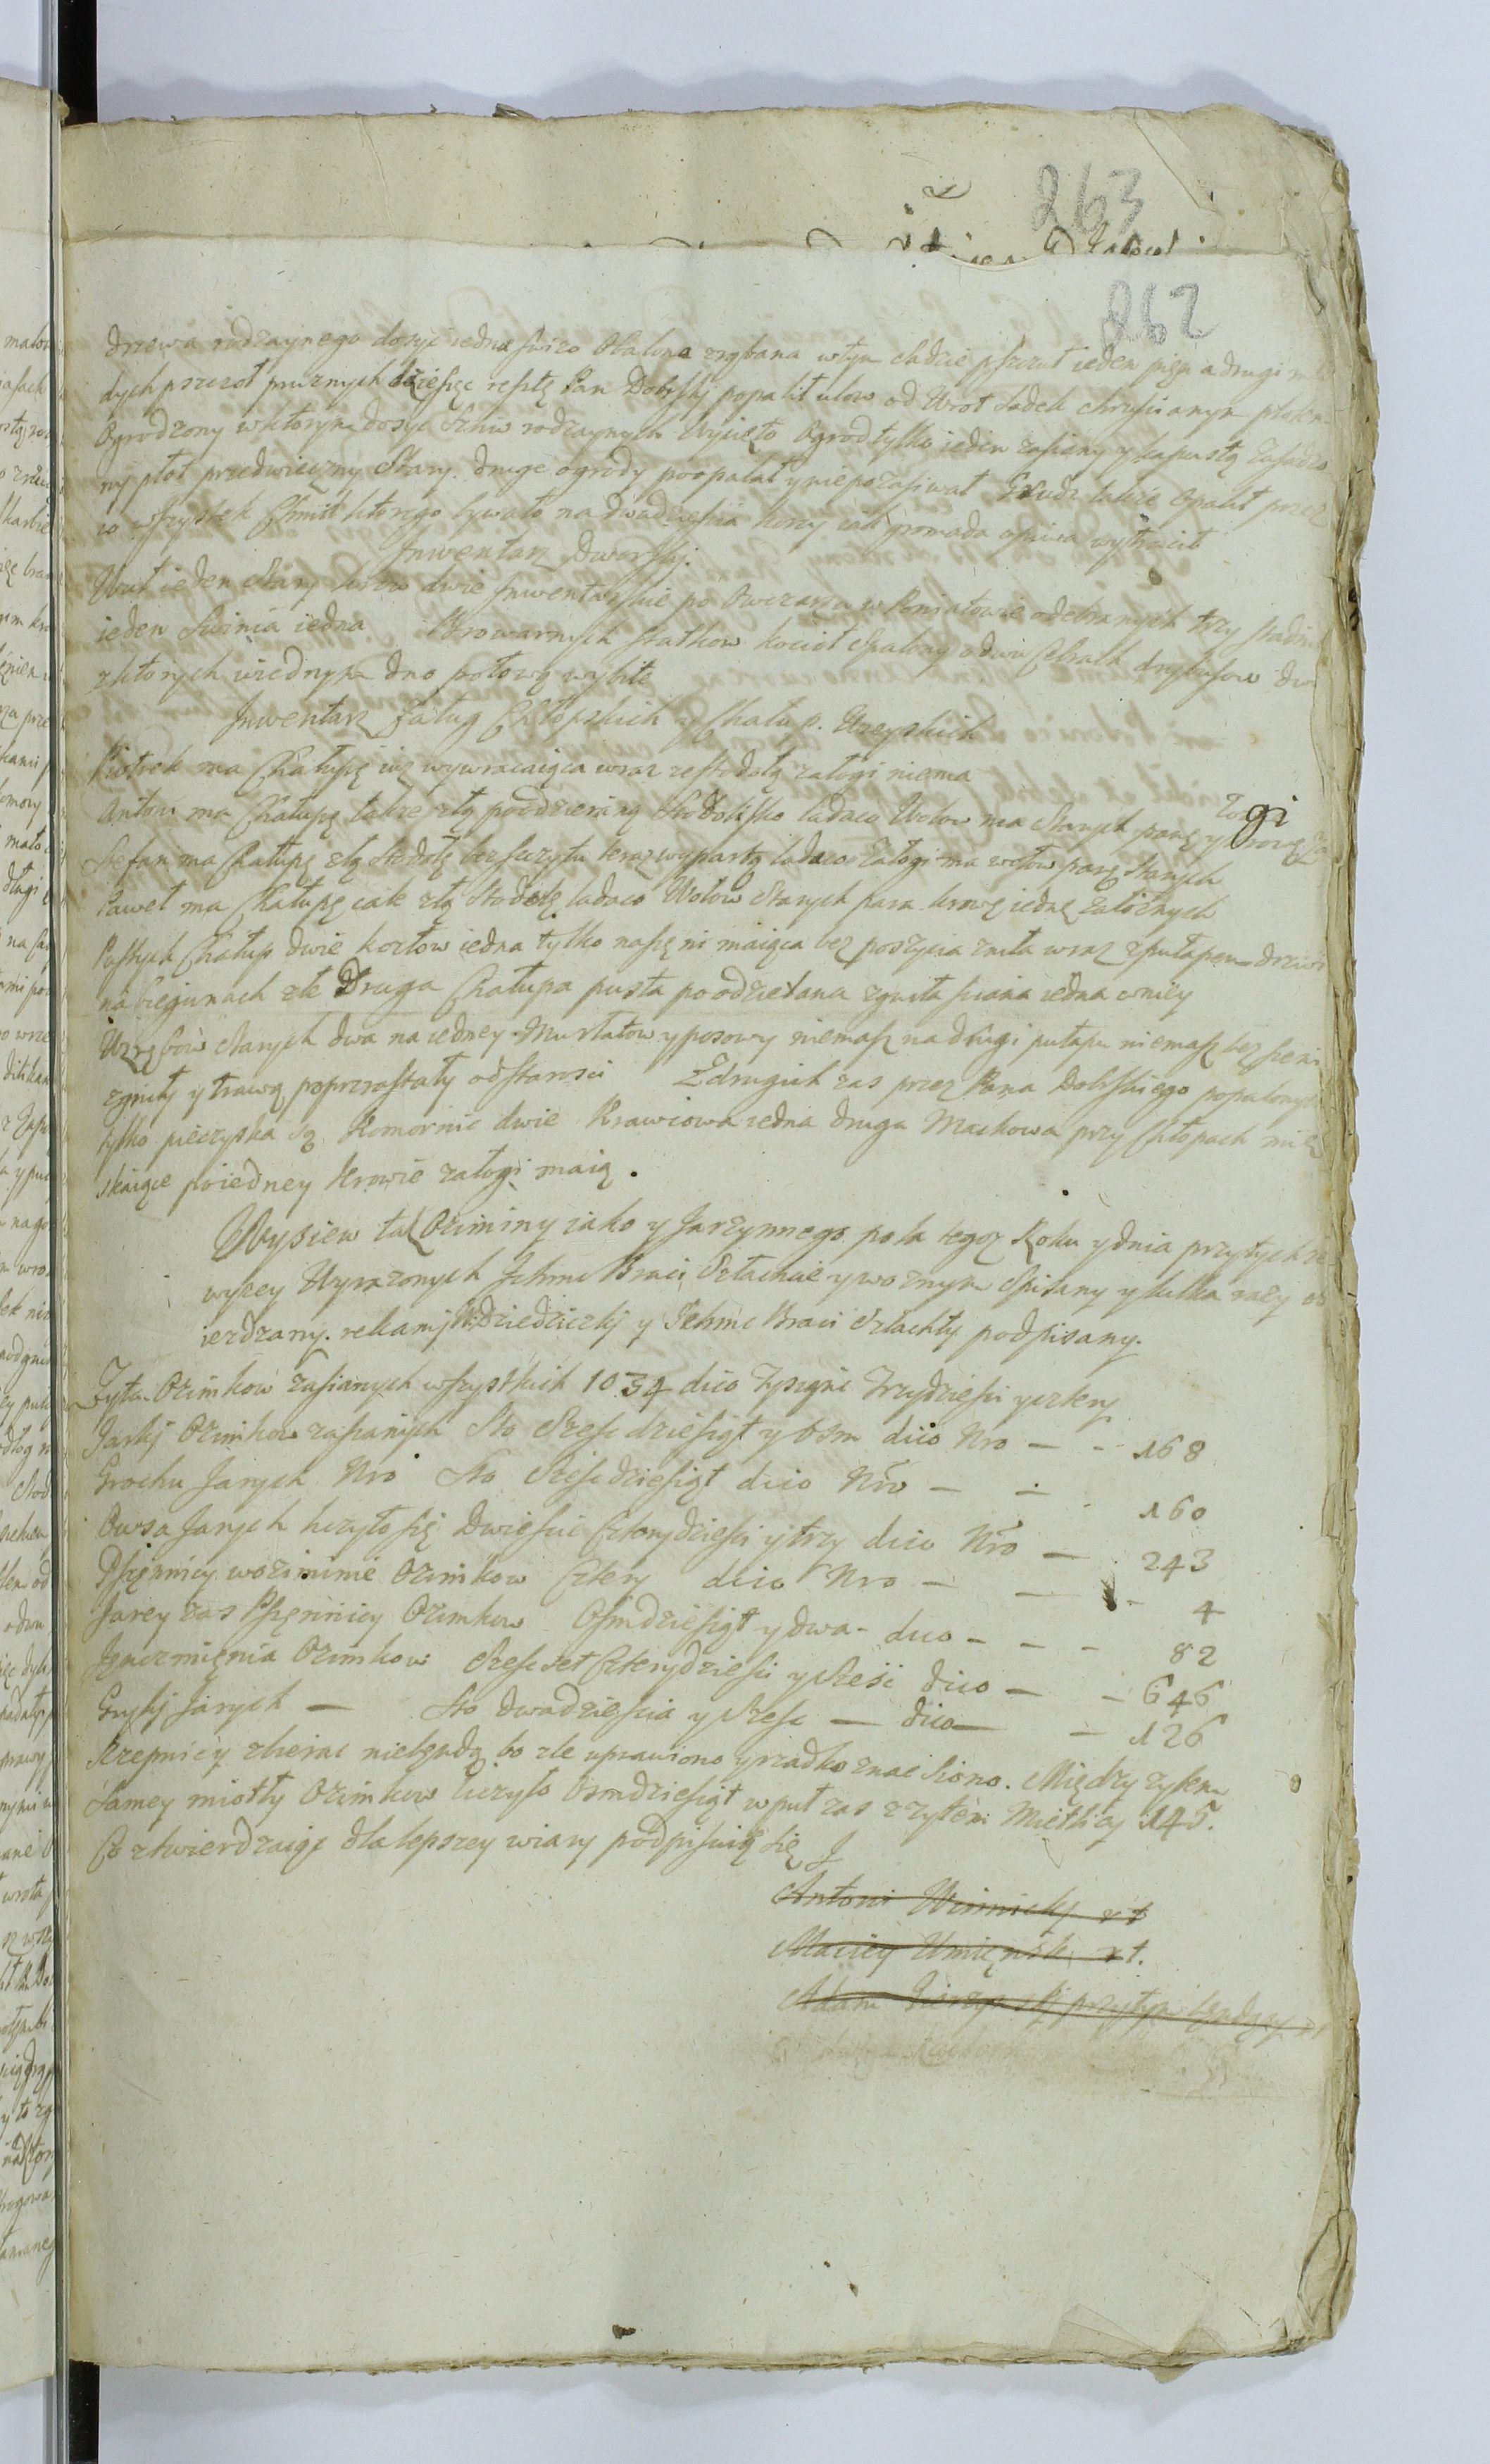 263
862
drzewa rodzaynego dosyc iedna swizo Obalona zrąbana wtym sadzie pszczoł ieden pięń a drugi
dych pszczoł prożnych dziesięc resztę Pan Dobrskj popalił ulow od Wrot Sadek chruscianym płotem
Ogrodzony wktorym dosyc Sliw rodzaynych Wycięto Ogrod tylko ieden zasiany y kapustą zasadzo
ny płot przedwieczny Stary. drugie ogrody poopalał y niepozasiwał także Opalił przez
co wszystek Chmiel ktorego bywało na dwadziescia korcy iak gromada opiwa wytracił
Inwentarz Dworskj.
ieden stary krow dwie Inwentarskie po Owczarzu w Koniatowie odebranych trzy
ieden Swinia iedna Browarnych statkow kocioł Spalony odwu
zktorych wiednym dno połowę wybite
Inwentarz Załug Chłopskich y Chałup. Wieyskich
Piotrek ma Chałupę iuz wywracaiąca wraz zestodołą załogi niema
Anton ma Chałupę takze złą poodzieraną Stodolisko ladaco Wołow ma Starych parę y krowę
Stefan ma Chałupę złą Stodołę bez szczytu teraz wypartą ladaco Załogi ma wołow parę Starych
Paweł ma Chałupę całe złą Stodołę ladaco Wołow Starych para krowę iednę załoznych
Pustych Chałup dwie kozłow iedna tylko naszęni maiąca bez poszycia zniła wraz zpułapem drzwi
na biegunach złe Druga Chałupa pusta poodzierana zgniła sciana iedna wniey
Wzrębow starych dwa na iedney Murłatow y posowy niemasz na drugi pułapu niemasz bez sieni
zgniły y trawą poprzrastały odstarosci Zdrugich zas przez Pana Dobskiego popalonych
tylko pieczyska są. Komornic dwie Krawcowa iedna druga Mackowa przy Chłopach mie
skaiące poiedney krowie załogi maią.
Wysiew tak Oziminy iako y Jarzynnego pola tegoz Roku y dnia przytychze
wyzey Wyrazonych Ichmc Braci Szlachcie y woznym Spisany y kilka razy
iezdzany. rekamj Dziedziczkj y Ichmc Braci Szlachty podpisany.
Zyta Ozimkow zasianych wszystkich 1034 dico Tysiąnc Trzydziesci y cztery
Jarkj Ozimkow zasianych Sto Szescdziesiąt y osm dico Nro — - 168
Grochu Jarych Nro Sto Szescdziesiąt dico Nro — — 160
Owsa Jarych liczyło się Dwiescie Czterydziesci y trzy dico Nro — 243
Pszęnnicy wozimnie Ozimkow Cztery dico Nro — — - 4
Jarey zas Pszęnnicy Ozimkow Osmdziesiąt y dwa - dico - - - 82
Jęnczmięnia Ozimkow Szescset Czterydziesci y Szesc dico — - 646
Grykj Jarych — Sto dwadziescia y Szesc — dico — - 126
Rzepnicy zbierac niebęndą bo zle uprawiono y rzadko znac siono. Między zytem
Samey miotły Ozimkow liczyło Osmdziesiąt wpuł zas zzytem Mietlicy 145.
Co ztwierdzaiąc dla lepszey wiary podpisuię się J
Antoni Winnickj
Maciey Uminski
Adam przytym będący